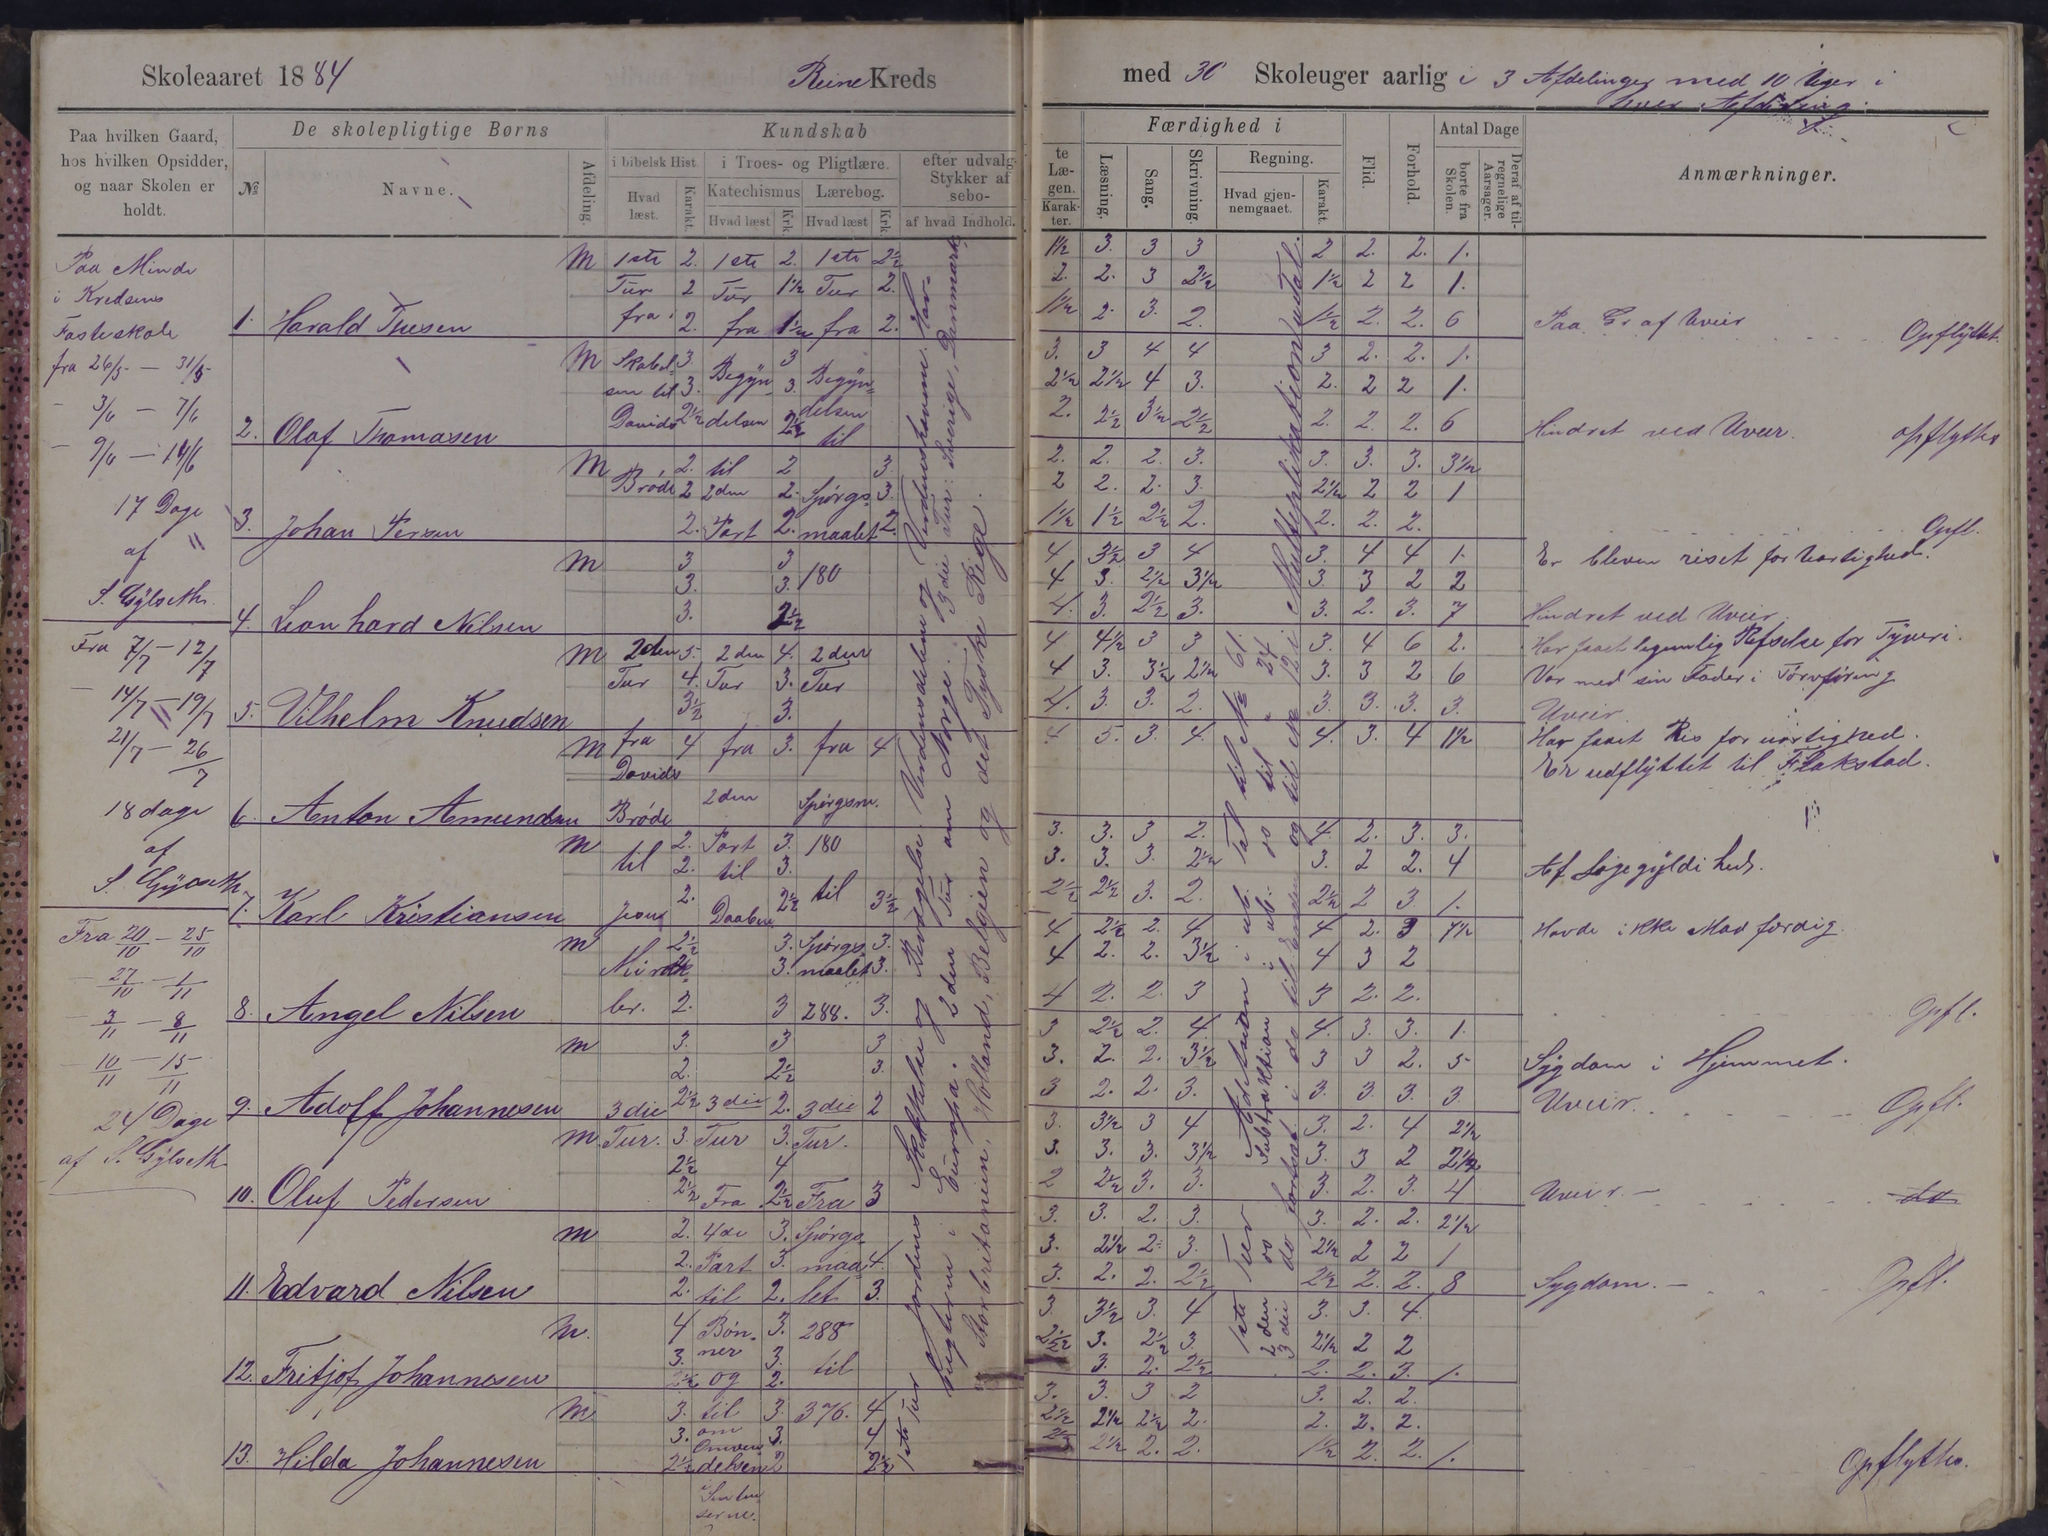 Skoleaaret 1884
Reine Kreds
med 30 Skoleuger aarlig i 3 Afdelinger med 10 Uger i
hver Afdeling.
Paa hvilken Gaard,
hos hvilken Opsidder,
og naar Skolen er
holdt.
De skolepligtige Børns
№
Navne.
Afdeling.
Kundskab
i bibelsk Hist.
Hvad
læst.
Karakt.
i Troes- og Pligtlære.
Katechismus
Hvad læst
Krk.
Lærebog.
Hvad læst
Krk.
efter udvalg-
Stykker af
sebo-
af hvad Indhold.
te
Læ-
gen.
Karak-
ter.
Færdighed i
Læsning.
Sang.
Skrivning.
Regning.
Hvad gjen-
nemgaaet.
Karakt.
Flid.
Forhold.
Antal Dage
borte fra
Skolen.
Deraf af til-
regnelige
Aarsager.
Anmærkninger.
Paa Minde
i Kredsens
Fasteskole
fra 26/5 — 31/5
- 3/6 - 7/6
- 9/6 - 14/6
17 Dage
af
S. Gylseth
Fra 7/7 - 12/7
- 14/7 - 19/7
21/7 - 26/7
18 dage
af
S. Gylseth
Fra 20/10 - 25/10
- 27/10 - 1/11
- 3/11 - 8/11
- 10/11 - 15/11
24 Dage
af S. Gylseth
1. Harald Tuesen
M
1ste 2. 1ste 2. 1ste 2½
Tur 2 Tur 1½ Tur 2.
fra 2. fra 1½ fra 2.
1½ 3. 3 3 2 2. 2. 1.
2. 2. 3 2½ 1½ 2 2 1.
1½ 2. 3. 2. 1½ 2. 2. 6
Paa Gr af Uveir Opflyttet.
2. Olaf Thomasen
M
Skabel- 3. 3
sen til 3. Begyn- 3. Begyn-
Davids 2½ delsen 2½ delsen
til
3. 3 4 4 3 2. 2. 1.
2½ 2½ 4 3. 2. 2 2 1.
2. 2½ 3½ 2½ 2. 2. 2. 6
Hindret ved Uveir. opflyttes
3. Johan Persen
M
2. til 2 3.
Brøde 2 2den 2. Spørgs- 3.
2. Part 2. maalet 2.
2. 2. 2. 3. 3. 3. 3. 3½
2 2. 2. 3. 2½ 2 2 1
1½ 1½ 2½ 2. 2. 2. 2.
Opfl.
4. Leonhard Nilsen
M
3 3
3. 3. 180
3. 2½
4 3½ 3 4 3. 4 4 1.
4 3. 2½ 3½ 3 3 2 2
4. 3. 2½ 3. 3. 2. 3. 7
Er bleven riset for Uartighed.
Hindret ved Uveir
5. Vilhelm Knudsen
M
2den 5. 2den 4. 2den
Tur 4. Tur 3. Tur
3½ 3.
4 4½ 3 3 3. 4 6 2.
4 3. 3½ 2½ 3. 3 2 6
4. 3. 3. 2. 3. 3. 3. 3.
Har faaet legemlig Refselse for Tyveri.
Var med sin Fader i Tørvføring
Uveir
6. Anton Amundsen
M
fra 4 fra 3. fra 4
Davids
2den
Brøde Spørgsm.
4 5. 3. 4. 4. 3. 4 1½
Har faaet Ris for uartighed.
Er udflyttet til Flakstad.
7. Karl Kristiansen
M
2. Part 3. 180
til 2. til 3.
2. 2½ til 3½
Jesus Daaben
3. 3. 3 2. 4. 2. 3. 3.
3. 3. 3. 2½ 3. 2 2. 4
2½ 2½ 3. 2. 2½ 2 3. 1.
8. Angel Nilsen
M
2½ 3. Spørgs- 3.
3. maalet 3.
br. 2. 3 288. 3.
4 2½ 2. 4 4 2. 3
4 2. 2. 3½ 4 3 2
4 2. 2. 3 3 2. 2.
Havde ikke Mad færdig.
Opfl.
9. Adolf Johannesen
M
3. 3 3
2. 2½ 3.
3die 2½ 3die 2. 3die 2
3 2½ 2. 4. 4. 3. 3. 1.
3. 2. 2. 3½ 3 3 2. 5
3 2. 2. 3. 3. 3. 3. 3.
Sygdom i Hjemmet.
Uveir. Opfl.
10. Oluf Pedersen
M.
Tur. 3. Tur 3. Tur.
2½ 4
2½ Fra 2½ Fra 3
3. 3½ 3 4 3. 2. 4 2½
3. 3. 3. 3½ 3. 3 2 2½
2 2½ 3. 3. 3. 2. 3. 4
Uveir. — do
11. Edvard Nilsen
M
2. 4de 3. Spørgs-
2. Part 3. maa- 4.
2. til 2. let 3.
3. 3. 2. 3. 3. 2. 2. 2½
3. 2½ 2. 3. 2½ 2 2 1
3. 2. 2. 2½ 2½ 2. 2. 8
Sygdom. — Opfl.
12. Fritjof Johannesen
M.
4 Bøn- 3. 288
3. ner 3.
2½ og 2. til
3. 3½ 3. 4 3. 3. 4.
2½ 3. 2½ 3 2½ 2 2
3. 2. 2½ 2. 2. 3. 1.
13. Hilda Johannesen
M
3. til 3. 376. 4
3. om 3. 4
Omven-
2½ delsen 2 2½
3. 3. 3 2 3. 2. 2.
2½ 2½ 2½ 2. 2. 2. 2.
2½ 2½ 2. 2. 1½ 2. 2. 1.
Opflyttes.
1ste Tur Jordens Skikkelse og Bevægelse Verdensdelene og Verdenshavene. Hav-
bugterne i Europa. 2den Tur om Norge. 3die Tur: Sverige, Danmark,
Storbritanien, Holland, Belgien og det Tyske Rige.
1ste Tur Addition i ub. Tal til № 61.
2den do Subtraktion i ub. do til 24
3die do fortsat i do til Enden og til № 12 i Multiplikation i ub. Tal.